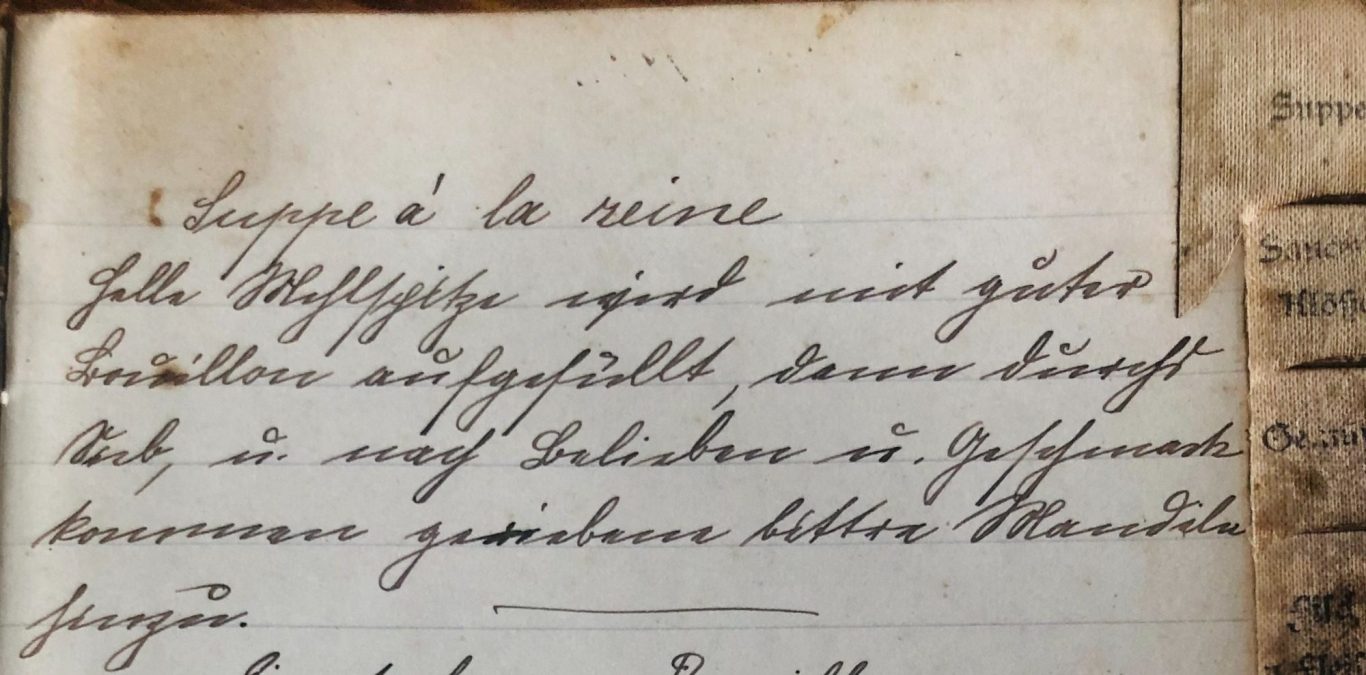 Suppe á la reine
Helle Mehlschwitze wird mit guter
Bouillon aufgefüllt, dann durchs
Sieb, u. nach Belieben u. Geschmack
kommen geriebene bittre Mandeln
hinzu.
Suppe